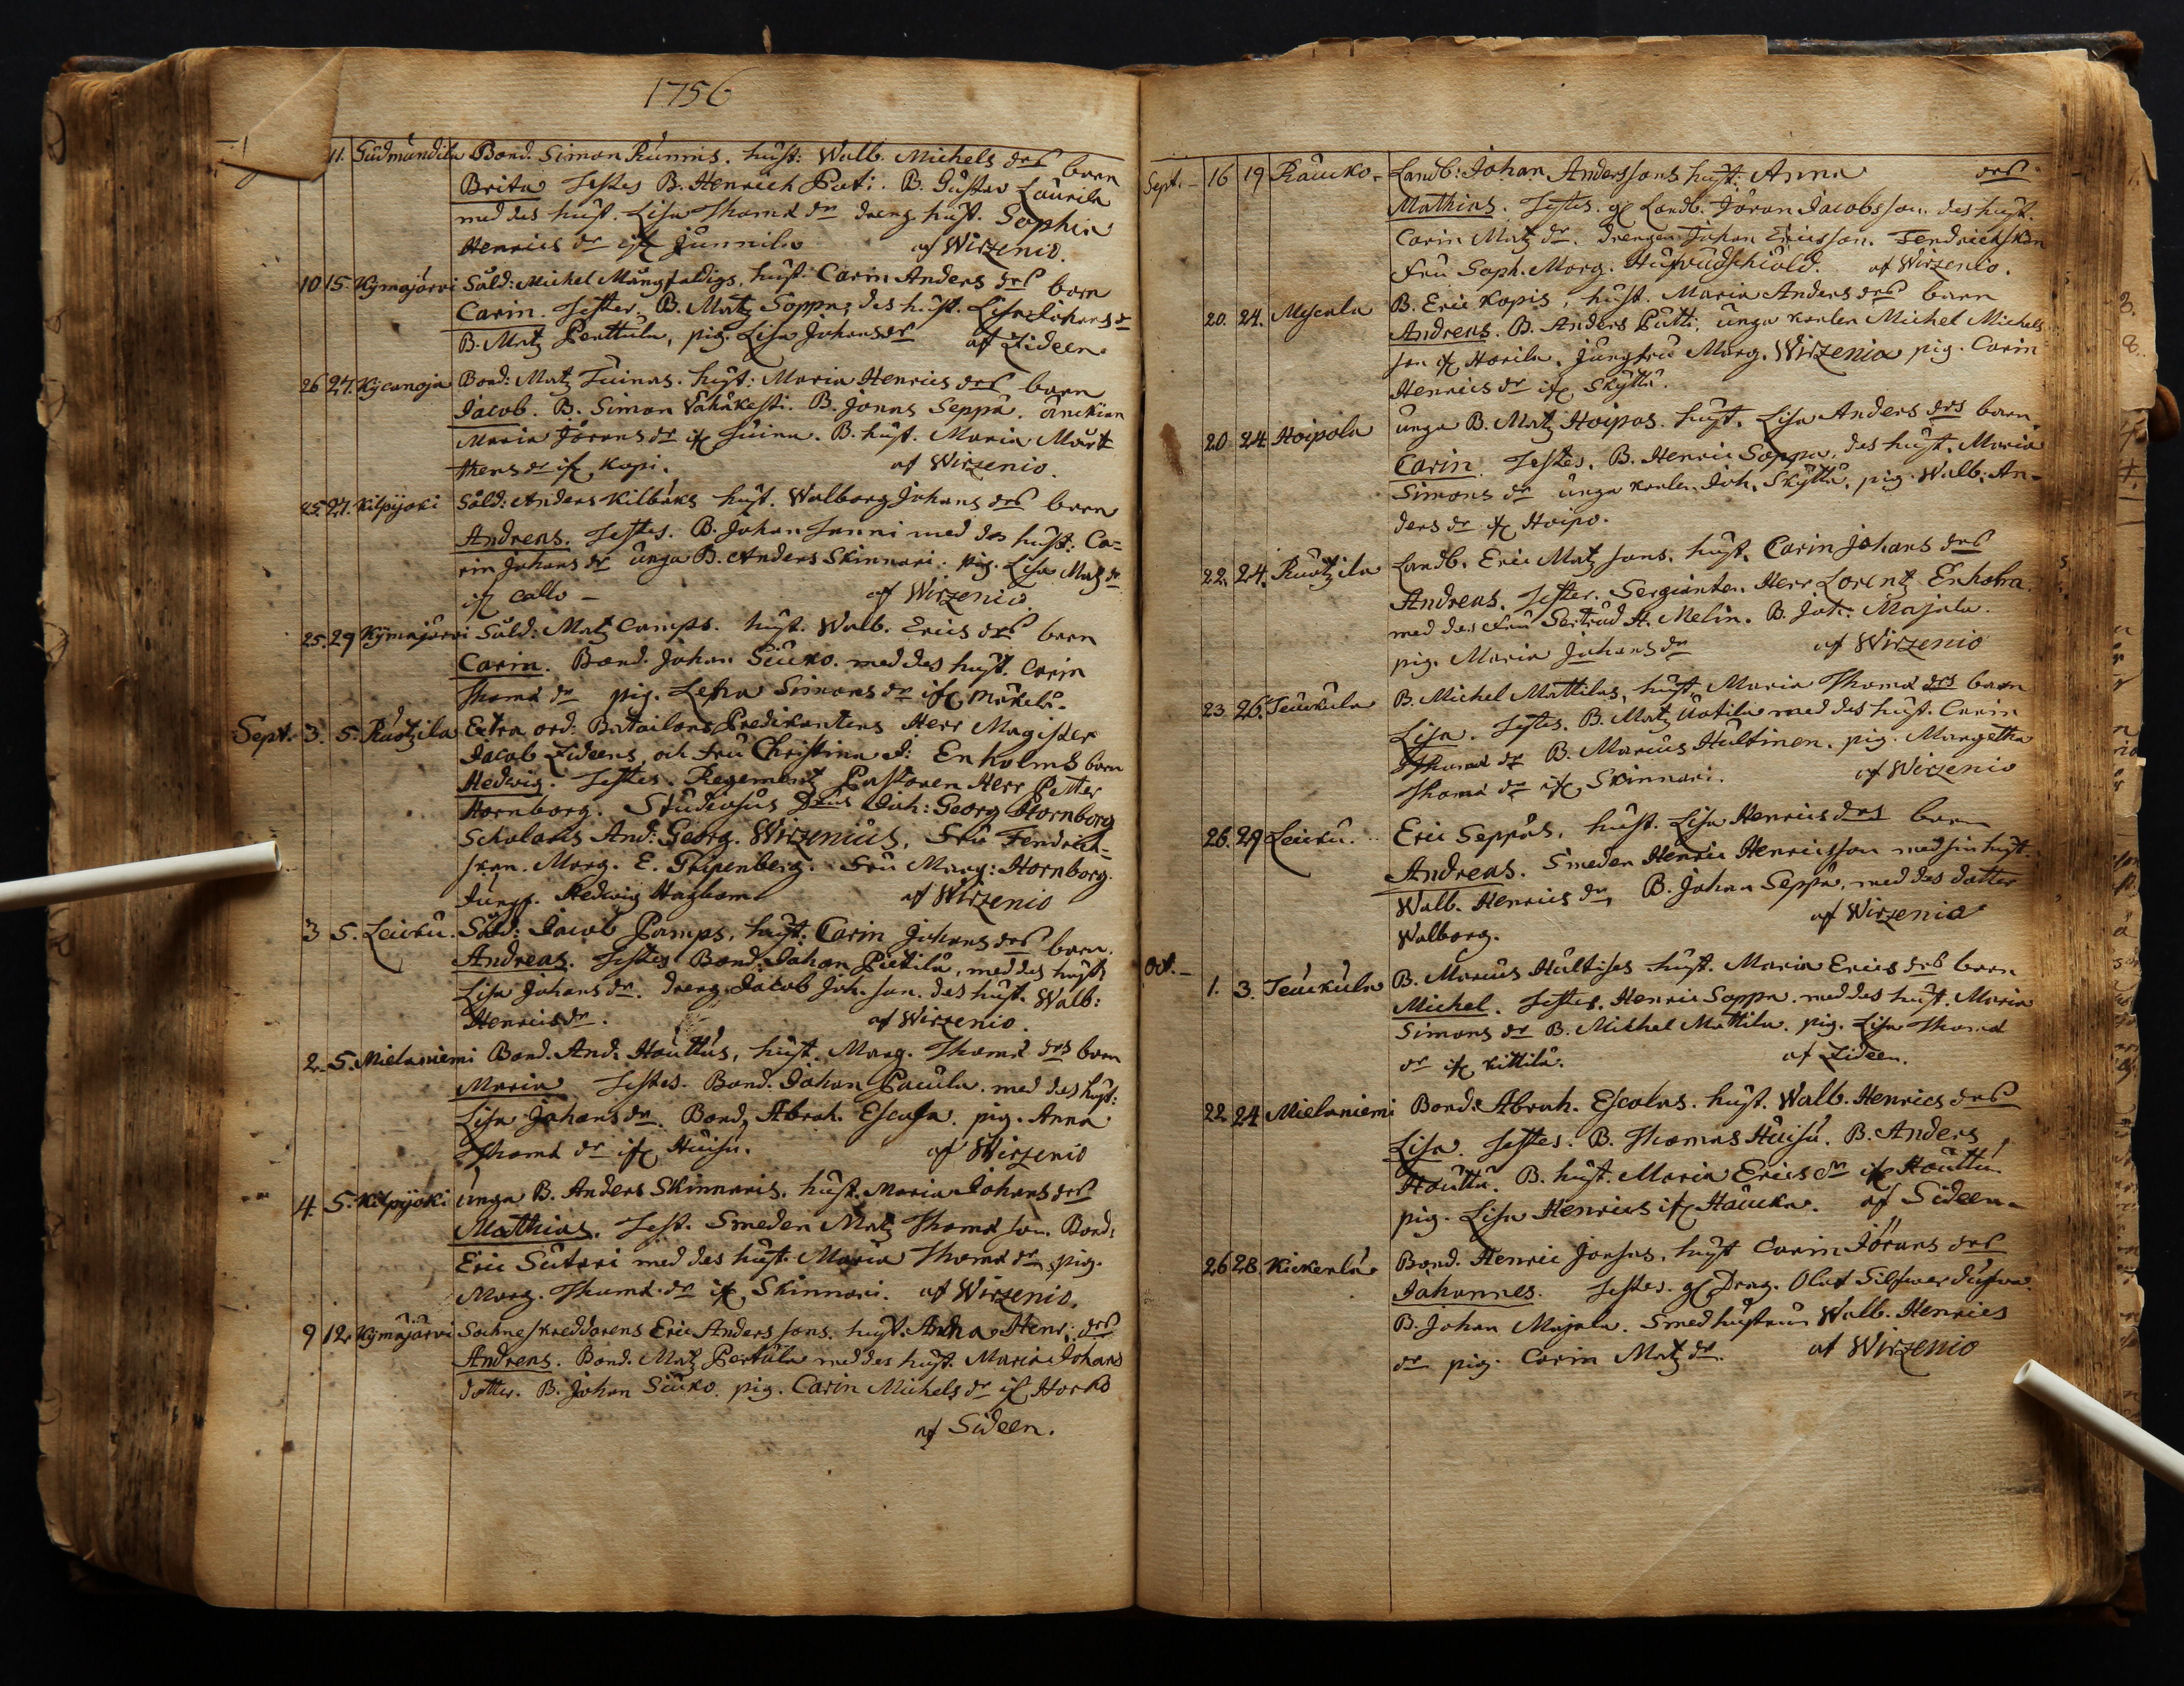 1756
11. Sudmundila Bond. Simon Runnis. hust: Walb. Michels drs barn
Brita Testes B. Henrich Pati. B. Gustav Laurila
med des hust. Lisa Thomæ dr dreng hust. Sophia
Henrics dr if Junnila af Wirzenio.
10 15. Kymäjärvi Sold: Michel Mångfaldigs, hust. Carin Anders drs barn
Carin. Tester. B. Matz Soppa, des hust. Lisa Johans dr
B. Matz Perttula, pig. Lisa Johans dr af Zideen.
26 27. Kycanoja Bond: Matz Tuinas. hust: Maria Henrics drs barn
Jacob. B. Simon Vähäkesti. B. Jonas Seppä. änckian
Maria Jörans dr if Tuina. B. hust. Maria Mårt
thens dr if Kopi. af Wirzenio.
25. 27. Kilpijoki Sold: Anders Kilbåks hust. Walborg Johans drs barn
Andreas. Testes. B. Johan Janni med des hust: Ca=
rin Johans dr unga B. Anders Skinnari. pig. Lisa Matz dr
if Callo – af Wirzenio
25. 29 Kymäjärvi Sold: Matz Camps. hust. Walb. Erics drs barn
Carin. Bond. Johan Siuko. med des hust. Carin
Thomæ dr pig. Lesra Simons dr if Mäkelä.
Sept. 3. 5. Ruotzila Extra ord. Batailons Predikantens Herr Magister
Jacob Zideens, och fru Christina J: Enholms barn
Hedwig. Testes. Regements Pastoren Herr Petter
Hornborg. Studiosus Dnus Joh: Georg Hornborg
Scholaris And: Georg. Wirzenius. Fru Fendrick=
skan. Marg. E. Gripenberg. Fru Marg: Hornborg.
Jungf. Hedwig Hagbom af Wirzenio
3 5. Leicku. Sold: Jacob Pamps, hust: Carin Johans drs barn.
Andreas. Testes Bond. Johan Pietilä, med des hust
Lisa Johans dr. dreng Jacob Joh. son. des hust. Walb:
Henrics dr. af Wirzenio.
2. 5. Mielaniemi Bond. And. Houttus, hust. Marg. Thomæ drs barn
Maria Testes. Bond. Johan Pacula. med des hust:
Lisa Johans dr. Bond. Abrah. Escola. pig. Anna
Thomæ dr if Huisu. af Wirzenio
4. 5. Kilpijoki unga B. Anders Skinnaris. hust. Maria Johans drs
Mathias. Test. Smeden Matz Thomæ son. Bond:
Eric Sutari med des hust. Maria Thomæ dr, pig.
Marg. Thomæ dr if Skinnari. af Wirzenio.
9 12. Kymäjärvi Sochneskreddarens Eric Anders sons. hust. Anna Henr: drs
Andreas. Bond. Matz Pertula med des hust. Maria Johans
dotter. B. Johan Siuko. pig. Carin Michels dr if Horko
af Sideen.
Sept. – 16 19 Raucko. Landb: Johan Anderssons hust. Anna drs
Mathias. Testes. gl Landb. Jöran Jacobsson. des hust.
Carin Matz dr. Drengen Johan Ericsson. Fendrickskan
Fru Soph. Marg. Hufvudschiöld. af Wirzenio.
20. 24. Myscala B. Eric Kopis, hust. Maria Anders drs barn
Andreas. B. Anders Putti. unga Karlen Michel Michels
son if Horila. Jungfru Marg. Wirzenia pig. Carin
Henrics dr if Skyttä.
20 24 Hoipola unga B. Matz Hoipos. hust. Lisa Anders drs barn
Carin. Testes. B. Henric Soppa. des hust. Maria
Simons dr unga karlen Joh. Skyttä. pig. Walb. An-
ders dr if Hoipo.
22. 24. Ruotzila Landb. Eric Matz sons. hust. Carin Johans drs
Andreas. Tester. Sergianten Herr Lorentz Enholm
med des Fru Gertrud H. Melin. B. Joh: Majala.
pig. Maria Johans dr af Wirzenio
23 26. Teuckula B. Michel Mattilas, hust. Maria Thomæ drs barn
Lisa. Testes. B. Matz Uotila med des hust. Carin
Thomæ dr B. Marcus Hultinen. pig. Margetha
Thomæ dr if Skinnari. af Wirzenio
26. 29 Leicku. Eric Seppäs, hust. Lisa Henrics drs barn
Andreas. Smeden Henric Henricsson med sin hust.
Walb. Henrics dr, B. Johan Seppä, med des dotter
Walborg. af Wirzenio
Oct. – 1. 3. Teuckula B. Marcus Hultises hust. Maria Erics drs barn
Michel. Testes. Henric Soppa. med des hust. Maria
Simons dr B. Michel Mattila. pig. Lisa Thomæ
dr if Kittilä. af Zideen.
22 24 Mielaniemi Bond: Abrah. Escolas. hust. Walb. Henrics drs
Lisa. Testes. B. Thomas Huisu. B. Anders
Houttu. B. hust. Maria Erics dr if Houttu
pig. Lisa Henrics if Haucka. af Sideen.
26 28 Kickerlä Bond. Henric Jonsas, hust Carin Jörans drs
Johannes. Testes. gl Drag. Olof Silfwerdufwa.
B. Johan Majala. Smedhustrun Walb. Henrics
dr pig. Carin Matz dr. af Wirzenio